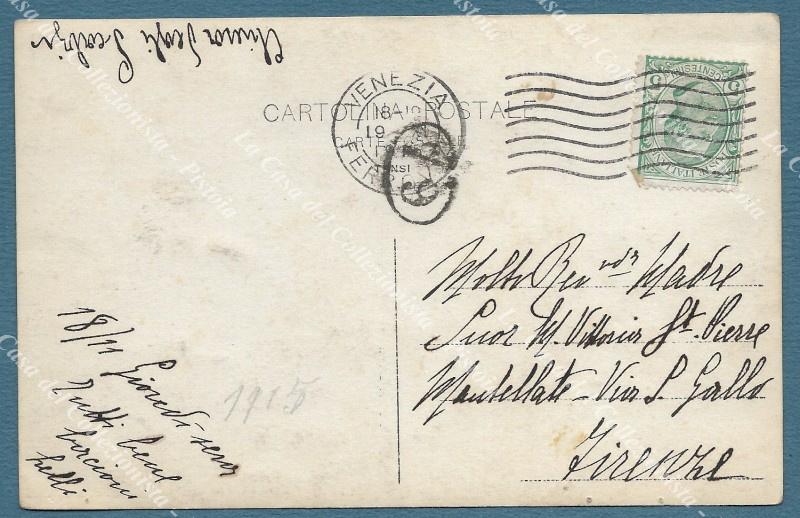 Chiesa degli Scalzi
CARTOLINA POSTALE
VENEZIA
18-19
19
FERROVIA
5 CENTESIMI 5
POSTE ITALIANE
Molto Rev vda Madre
Suor M. Vittoria St. Pierre
Mantellate - Via S. Gallo
Firenze
18/11 Giovedì sera
Tutti bene
bacioni
belli
1915
La Casa del Collezionista - Pistoia